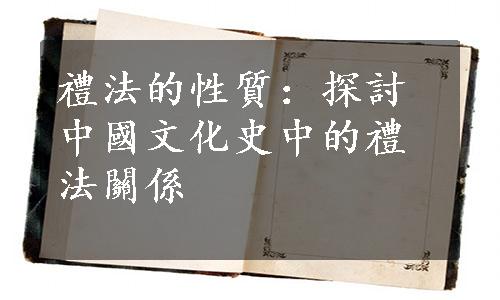 禮法的性質：探討
中國文化史中的禮
法關係